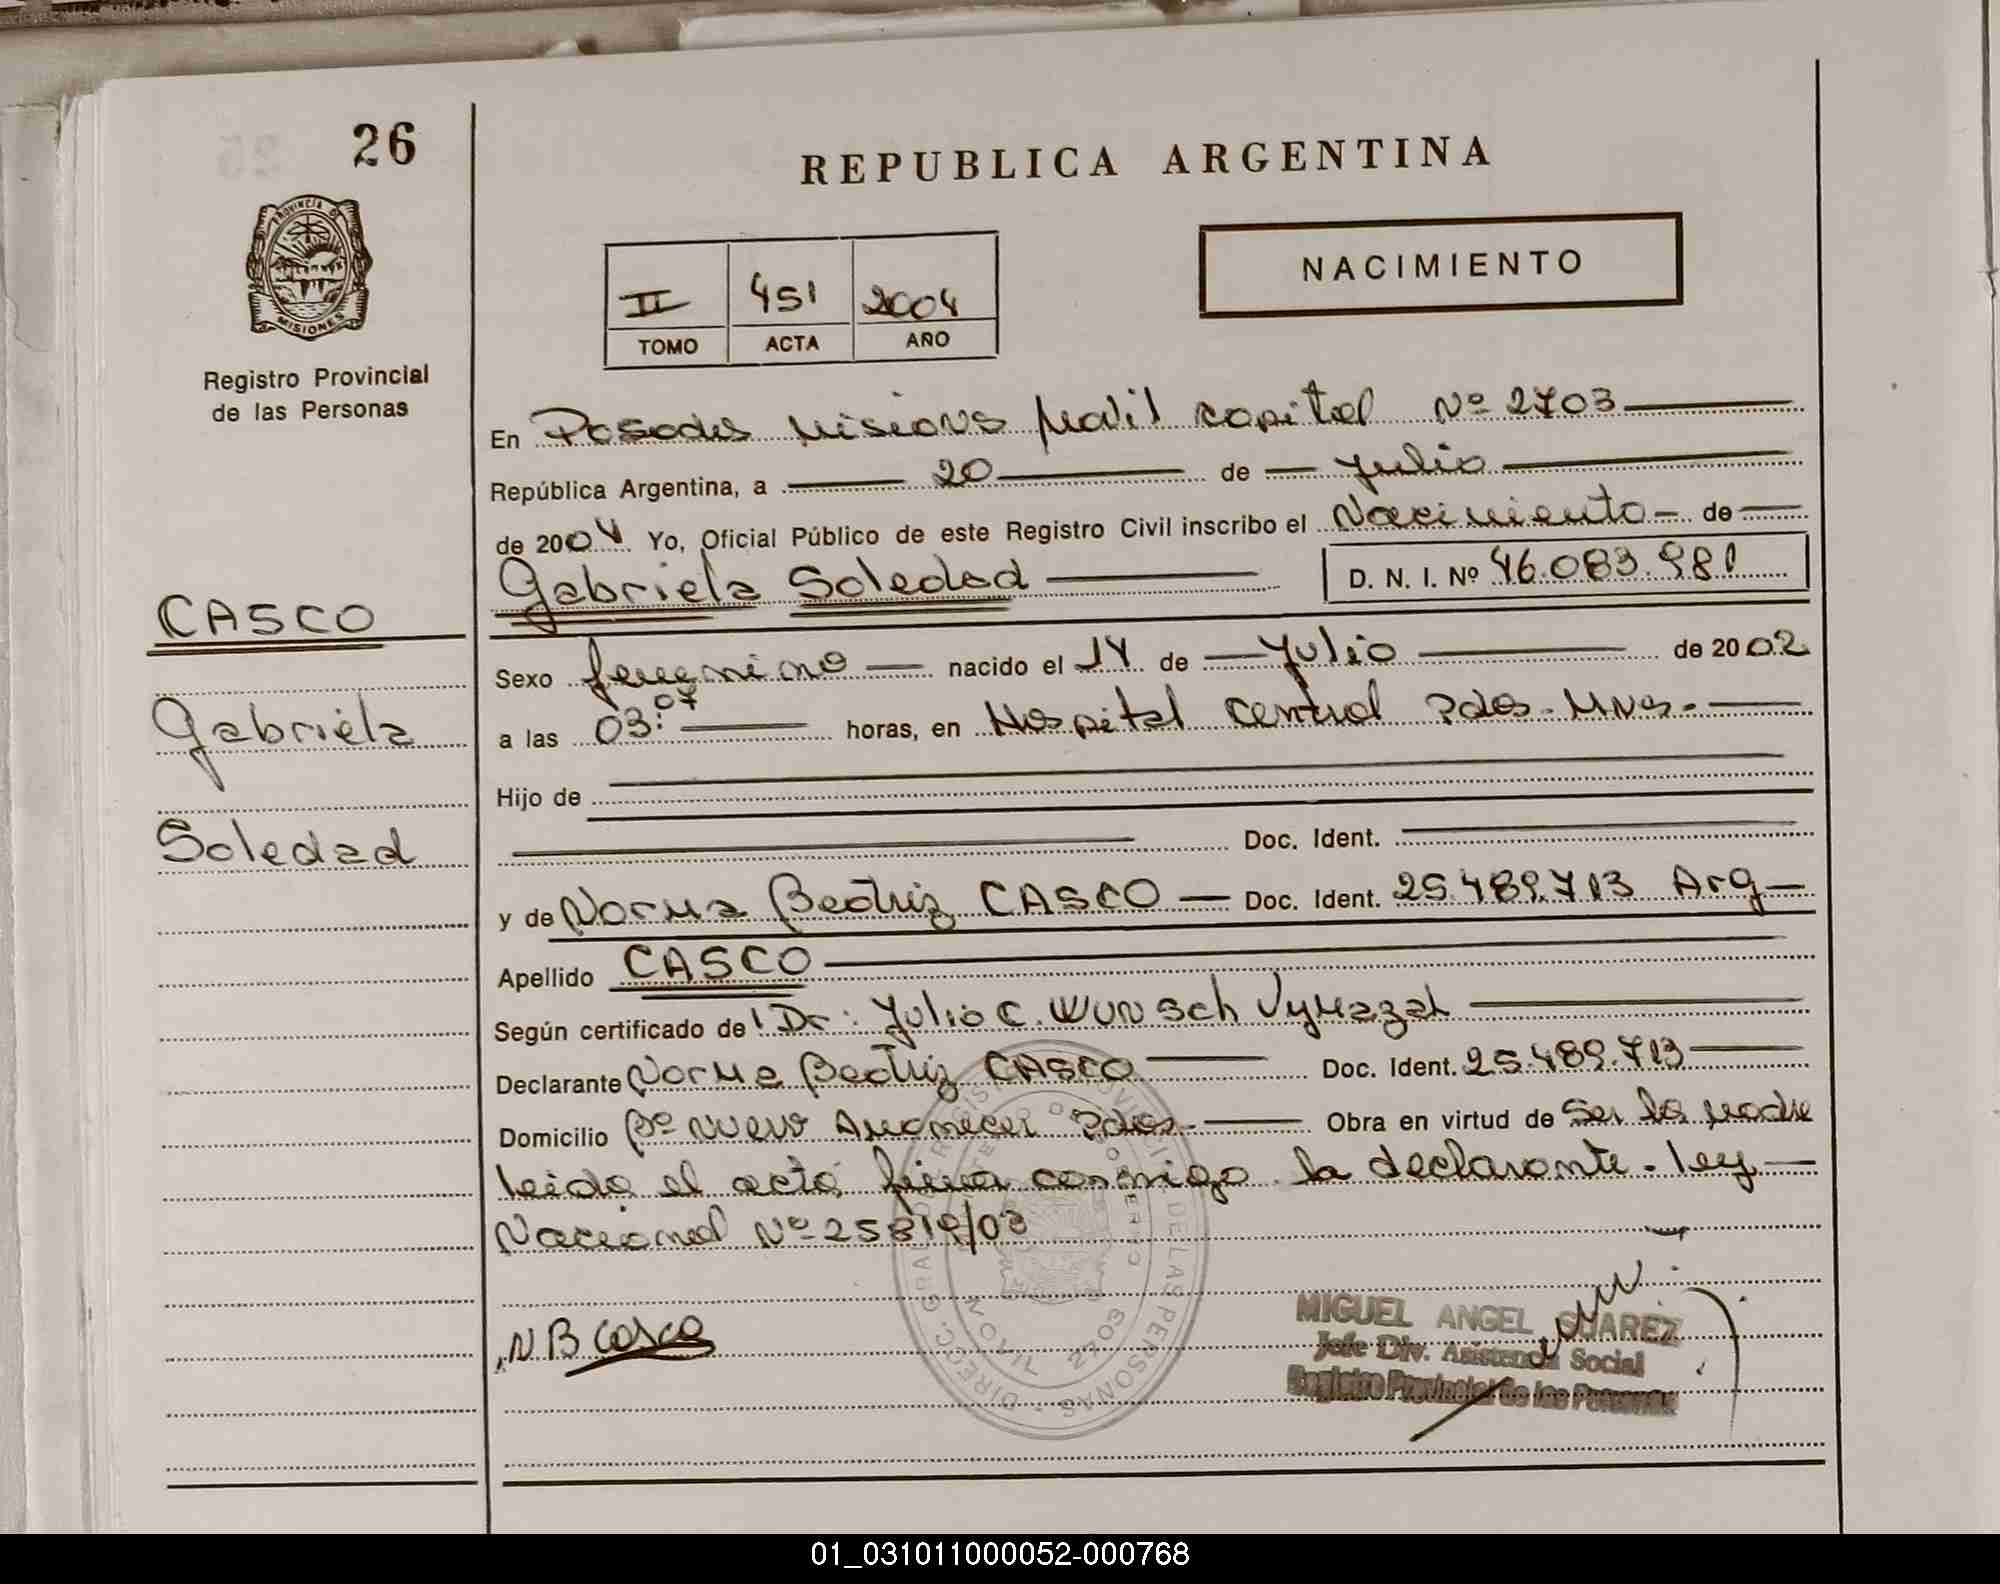 26
REPUBLICA ARGENTINA
PROVINCIA DE
MISIONES
Registro Provincial
de las Personas
NACIMIENTO
II 451 2004
TOMO ACTA AÑO
En Posadas Misiones Movil capital Nº 2703
República Argentina, a 20 de Julio
de 2004 Yo, Oficial Público de este Registro Civil inscribo el Nacimiento - de
Gabriela Soledad D. N. I. Nº 46.083.981
CASCO
Gabriela
Soledad
Sexo femenino nacido el 14 de Julio de 2002
a las 03:07 horas, en Hospital Central Pdas - Mnes. -
Hijo de
Doc. Ident.
y de Norma Beatriz CASCO - Doc. Ident. 25.489.713 Arg -
Apellido CASCO
Según certificado de Dr: Julio C. Wunsch Vymazal
Declarante Norma Beatriz CASCO Doc. Ident. 25.489.713
Domicilio Bº Nuevo Amanecer Pdas - Obra en virtud de ser la madre
leido el acta firma conmigo la declarante. ley -
Nacional Nº 25819/03
NB Casco
DIRECC. GRAL. REGISTRO PROVINCIAL DE LAS PERSONAS
MOVIL 2703
MIGUEL ANGEL SUAREZ
Jefe Div. Asistencia Social
Registro Provincial de las Personas
01_031011000052-000768